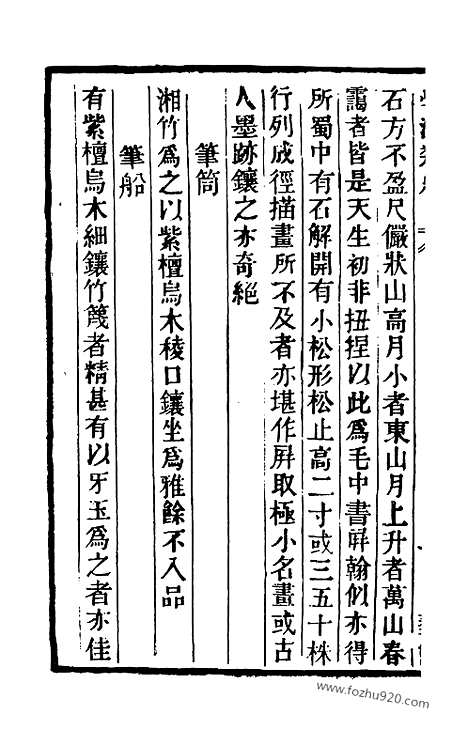 石方不盈尺儼狀山高月小者東山月上升者萬山春
靄者皆是天生初非扭捏以此爲毛中書屛翰似亦得
所蜀中有石解開有小松形松止高二寸或三五十株
行列成徑描畫所不及者亦堪作屛取極小名畫或古
人墨跡鑲之亦奇絕
筆筒
湘竹爲之以紫檀烏木稜口鑲坐爲雅餘不入品
筆船
有紫檀烏木細鑲竹篾者精甚有以牙玉爲之者亦佳
www.fozhu920.com